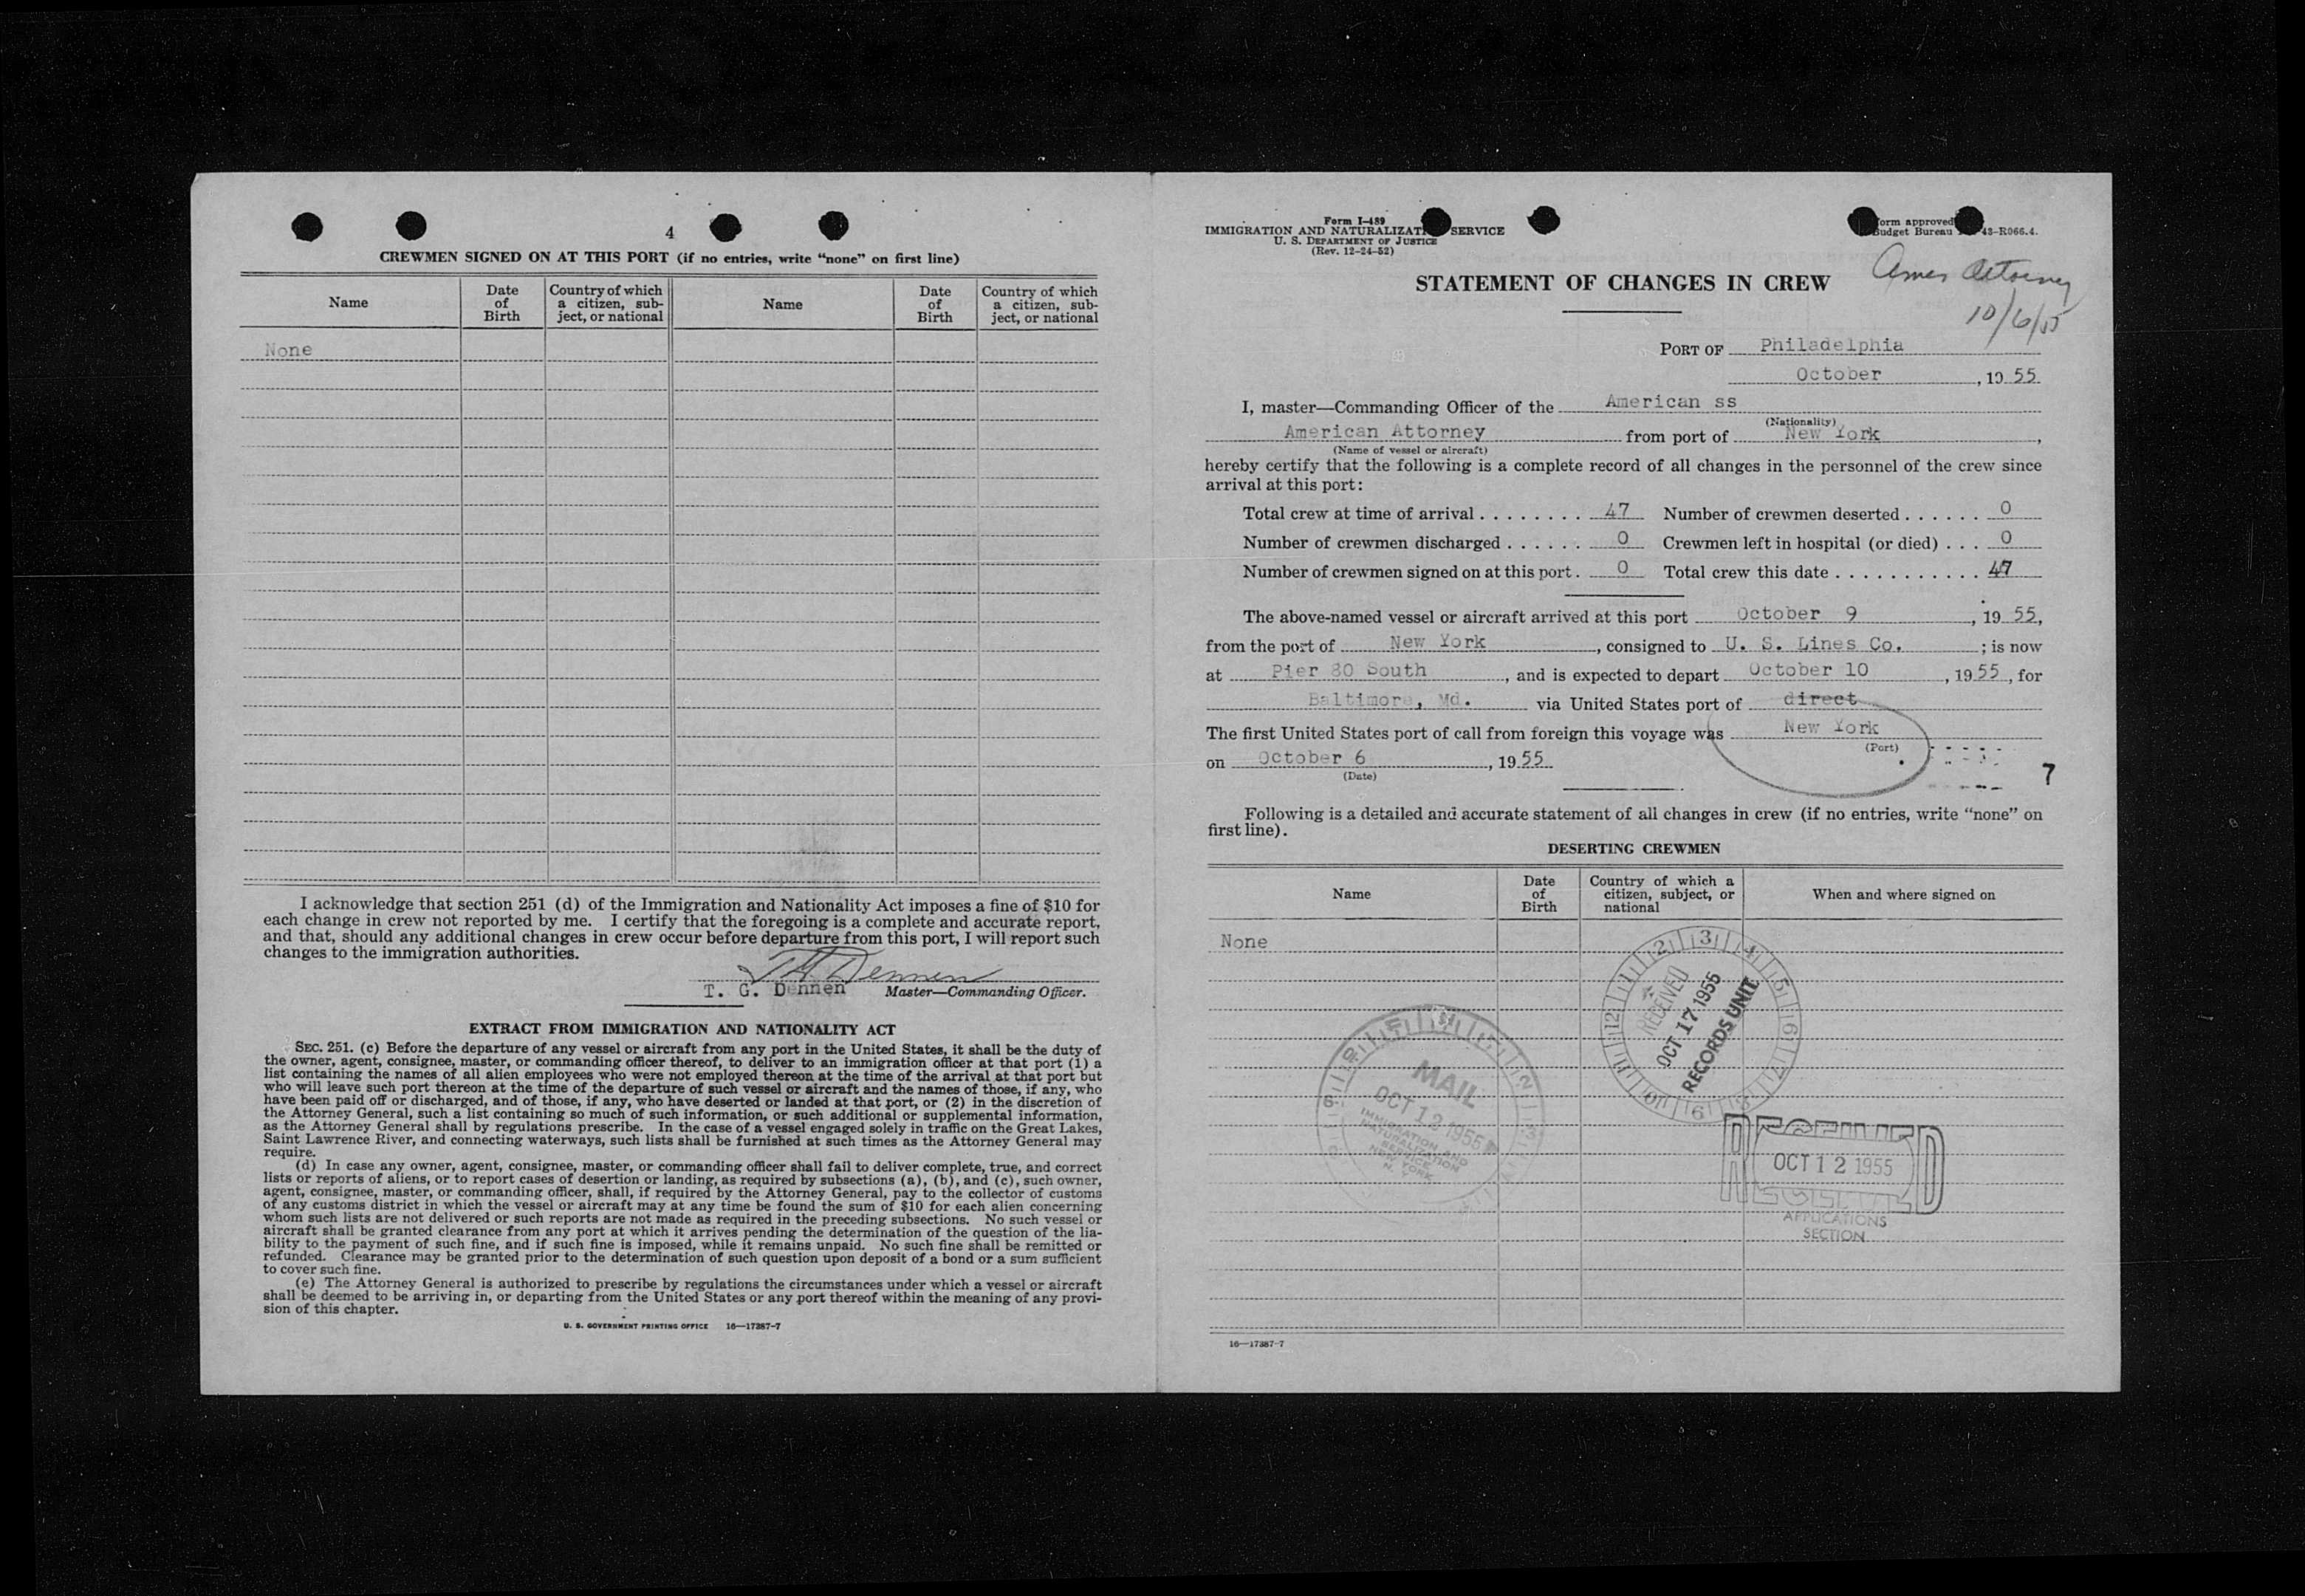 4
CREWMEN SIGNED ON AT THIS PORT (if no entries, write “none” on first line)
Name
Date of Birth
Country of which a citizen, sub-ject, or national
Name
Date of Birth
Country of which a citizen, sub-ject, or national
None
I acknowledge that section 251 (d) of the Immigration and Nationality Act imposes a fine of $10 for
each change in crew not reported by me. I certify that the foregoing is a complete and accurate report,
and that, should any additional changes in crew occur before departure from this port, I will report such
changes to the immigration authorities.
T. G. Dennen Master—Commanding Officer.
EXTRACT FROM IMMIGRATION AND NATIONALITY ACT
SEC. 251. (c) Before the departure of any vessel or aircraft from any port in the United States, it shall be the duty of
the owner, agent, consignee, master, or commanding officer thereof, to deliver to an immigration officer at that port (1) a
list containing the names of all alien employees who were not employed thereon at the time of the arrival at that port but
who will leave such port thereon at the time of the departure of such vessel or aircraft and the names of those, if any, who
have been paid off or discharged, and of those, if any, who have deserted or landed at that port, or (2) in the discretion of
the Attorney General, such a list containing so much of such information, or such additional or supplemental information,
as the Attorney General shall by regulations prescribe. In the case of a vessel engaged solely in traffic on the Great Lakes,
Saint Lawrence River, and connecting waterways, such lists shall be furnished at such times as the Attorney General may
require.
(d) In case any owner, agent, consignee, master, or commanding officer shall fail to deliver complete, true, and correct
lists or reports of aliens, or to report cases of desertion or landing, as required by subsections (a), (b), and (c), such owner,
agent, consignee, master, or commanding officer, shall, if required by the Attorney General, pay to the collector of customs
of any customs district in which the vessel or aircraft may at any time be found the sum of $10 for each alien concerning
whom such lists are not delivered or such reports are not made as required in the preceding subsections. No such vessel or
aircraft shall be granted clearance from any port at which it arrives pending the determination of the question of the lia-
bility to the payment of such fine, and if such fine is imposed, while it remains unpaid. No such fine shall be remitted or
refunded. Clearance may be granted prior to the determination of such question upon deposit of a bond or a sum sufficient
to cover such fine.
(e) The Attorney General is authorized to prescribe by regulations the circumstances under which a vessel or aircraft
shall be deemed to be arriving in, or departing from the United States or any port thereof within the meaning of any provi-
sion of this chapter.
U. S. GOVERNMENT PRINTING OFFICE 16—17387-7
Form I-489
IMMIGRATION AND SERVICE
U. S. DEPARTMENT OF JUSTICE
(Rev. 12-24-52)
approved
Budget Bureau 43-R066.4.
Amer Attorney
10/6/55
STATEMENT OF CHANGES IN CREW
PORT OF Philadelphia
October , 19 55
I, master—Commanding Officer of the American ss
(Nationality)
American Attorney from port of New York ,
(Name of vessel or aircraft)
hereby certify that the following is a complete record of all changes in the personnel of the crew since
arrival at this port:
Total crew at time of arrival . . . . . . . . 47 Number of crewmen deserted . . . . . . 0
Number of crewmen discharged . . . . . . 0 Crewmen left in hospital (or died) . . . 0
Number of crewmen signed on at this port . 0 Total crew this date . . . . . . . . . . . 47
The above-named vessel or aircraft arrived at this port October 9 , 19 55,
from the port of New York , consigned to U. S. Lines Co. ; is now
at Pier 80 South , and is expected to depart October 10 , 19 55 , for
Baltimore, Md. via United States port of direct
The first United States port of call from foreign this voyage was New York
(Port)
on October 6 , 19 55
(Date)
7
Following is a detailed and accurate statement of all changes in crew (if no entries, write “none” on
first line).
DESERTING CREWMEN
Name
Date of Birth
Country of which a citizen, subject, or national
When and where signed on
None
RECEIVED
OCT 17 1955
RECORDS UNIT
MAIL
OCT 12 1955
IMMIGRATION AND
NATURALIZATION
SERVICE
NEW YORK
N. Y.
RECEIVED
OCT 12 1955
RECEIVED
APPLICATIONS
SECTION
16—17387-7